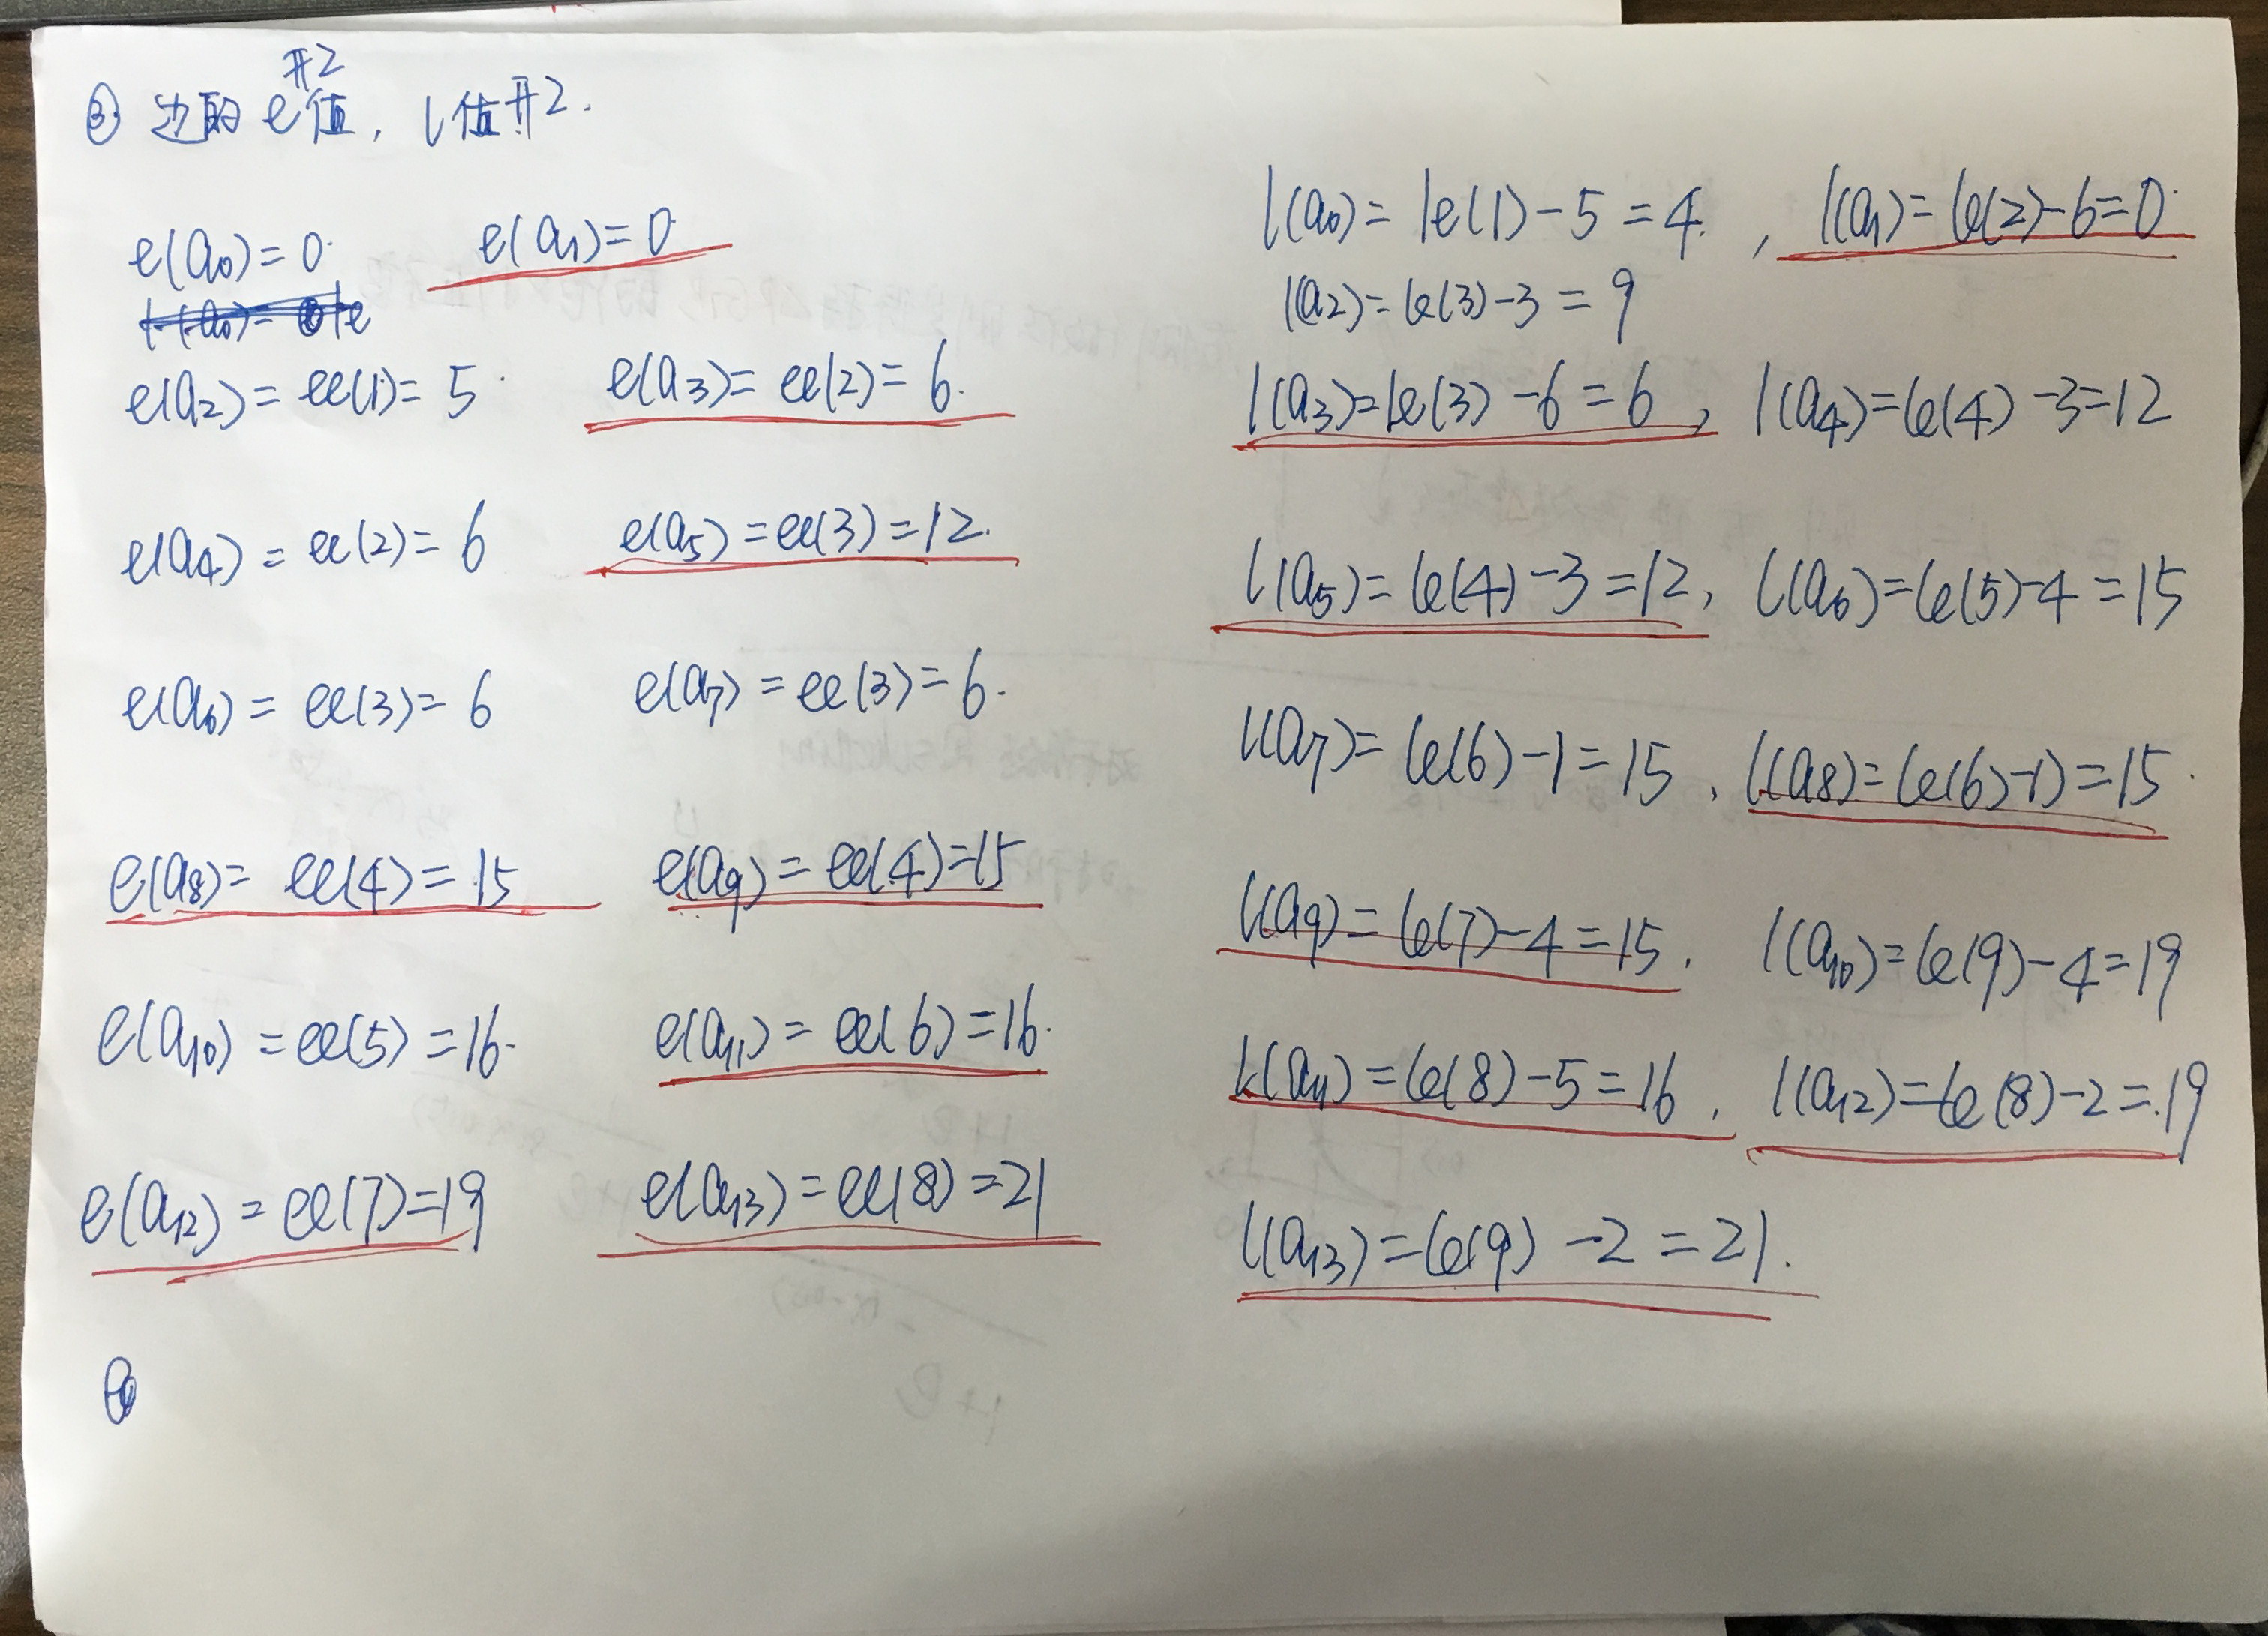 ③ 边的 e值, l值 #2.
#2
e(a0)=0. e(a1)=0
e(a2)= ee(1)= 5 e(a3)= ee(2)= 6.
e(a4) = ee(2)= 6 e(a5) = ee(3) = 12.
e(a6) = ee(3)= 6 e(a7) = ee(3)= 6.
e(a8)= ee(4)= 15 e(a9) = ee(4)=15
e(a10) = ee(5) =16. e(a11) = ee(6)=16.
e(a12) = ee(7)=19 e(a13)=ee(8)=21
l(a0)= le(1)-5 =4. , l(a1)= le(2)-6=0.
l(a2)= le(3)-3 = 9
l(a3)=le(3) -6 = 6 , l(a4)=le(4) -3=12
l(a5)= le(4)-3 =12, l(a6)=le(5)-4 =15
l(a7)= le(6)-1=15 , l(a8)= le(6)-1)=15.
l(a9) = le(7)-4=15. l(a10)=le(9)-4=19
l(a11) =le(8)-5=16 , l(a12)=le(8)-2=.19
l(a13)=le(9) -2 = 21.